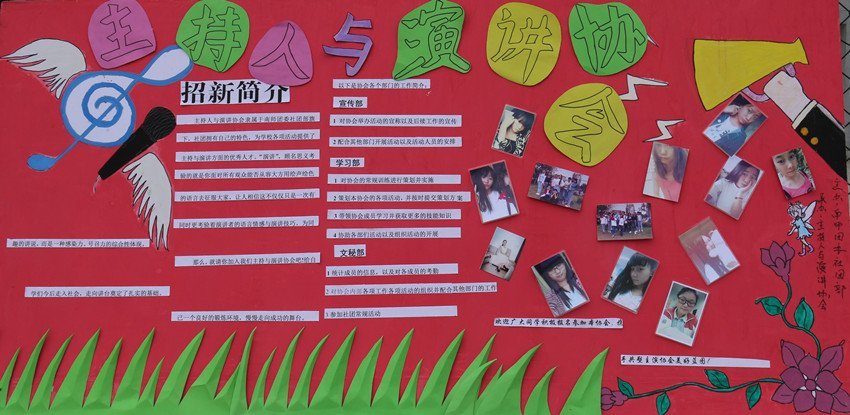 主持人与演讲协会
招新简介
主持人与演讲协会隶属于南师团委社团部旗
下，社团拥有自己的特色，为学校各项活动提供了
主持与演讲方面的优秀人才。“演讲”，顾名思义考
验的就是你面对所有观众能否从容大方用绘声绘色
的语言去征服大家，让人相信这不仅仅只是一次有
趣的讲说，而是一种感染力，号召力的综合性体现。
同时更考验着演讲者的语言情感与演讲技巧，为同
学们今后走入社会，走向讲台奠定了扎实的基础。
那么，就请你加入我们主持与演讲协会吧!给自
己一个良好的锻炼环境，慢慢走向成功的舞台。
以下是协会各个部门的工作简介:
宣传部
1 对协会举办活动的宣称以及后续工作的宣传
2配合其他部门开展活动以及活动人员的安排
学习部
1 对协会的常规训练进行策划并实施
2策划本协会的各项活动，并按时提交策划方案
3带领协会成员学习并获取更多的技能知识
4协助各部们活动以及组织活动的开展
文秘部
1统计成员的信息，以及对各成员的考勤
2对协会内部各项工作各项活动的组织并配合其他部门的工作
3参加社团常规活动
欢迎广大同学积极报名参加本协会，
手共塑主演协会美好蓝图!
主持人与演讲协会